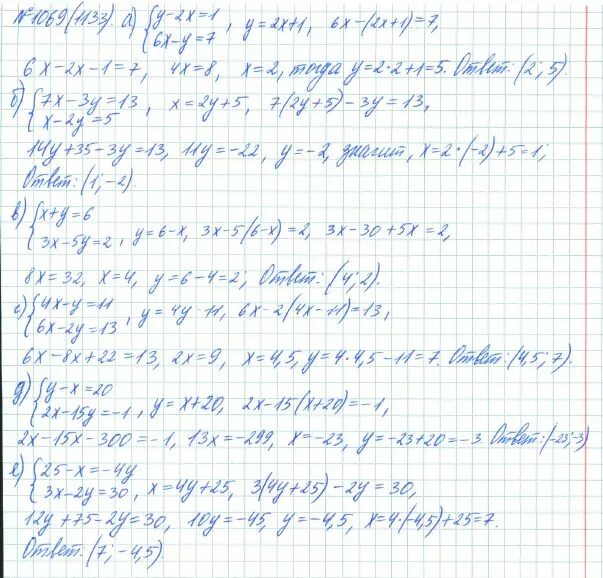 №1069(1133). а) {y-2x=1, y=2x+1, 6x-(2x+1)=7,
6x-y=7
6x-2x-1=7, 4x=8, x=2, тогда y=2·2+1=5. Ответ: (2; 5).
б) {7x-3y=13, x=2y+5, 7(2y+5)-3y=13,
x-2y=5
14y+35-3y=13, 11y=-22, y=-2, значит, x=2·(-2)+5=1;
Ответ: (1; -2).
в) {x+y=6
3x-5y=2, y=6-x, 3x-5(6-x)=2, 3x-30+5x=2,
8x=32, x=4, y=6-4=2; Ответ: (4; 2).
г) {4x-y=11
6x-2y=13, y=4y-11, 6x-2(4x-11)=13,
6x-8x+22=13, 2x=9, x=4,5, y=4·4,5-11=7. Ответ: (4,5; 7).
д) {y-x=20
2x-15y=-1, y=x+20, 2x-15(x+20)=-1,
2x-15x-300=-1, 13x=-299, x=-23, y=-23+20=-3. Ответ: (-23; -3)
е) {25-x=-4y
3x-2y=30, x=4y+25, 3(4y+25)-2y=30,
12y+75-2y=30, 10y=-45, y=-4,5, x=4·(-4,5)+25=7.
Ответ: (7; -4,5).